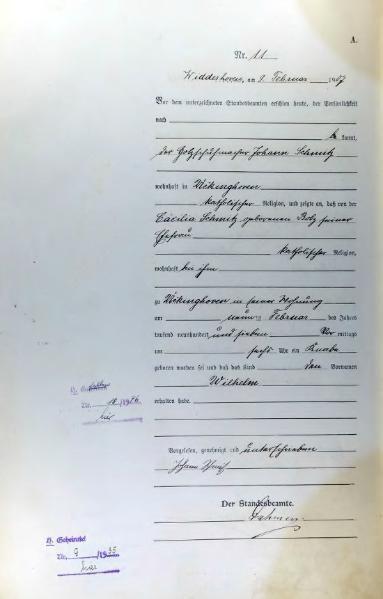 A.
Nr. 11
Widdeshoven, am 9. Februar 1907
Vor dem unterzeichneten Standesbeamten erschien heute, der Persönlichkeit
nach
be kannt,
der Holzschuhmacher Johann Schmitz
wohnhaft in Wickinghoven
katholischer Religion, und zeigte an, daß von der
Cäcilia Schmitz geborenen seiner
Ehefrau
katholischer Religion,
wohnhaft bei ihm
zu Wickinghoven in seiner Wohnung
am neun Februar des Jahres
tausend neunhundert und sieben Vor mittags
um sechs Uhr ein Knabe
geboren worden sei und daß das Kind den Vornamen
Wilhelm
erhalten habe.
Vorgelesen, genehmigt und unterschrieben
Johann
Der Standesbeamte.
H.
Nr. /19
H. Geheiratet
Nr. 9 /1935